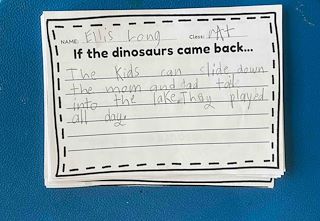 NAME: Ellis Long Class: rAt
If the dinosaurs came back...
The kids can slide down
the mom and dad tail
into the lake. They played
all day.